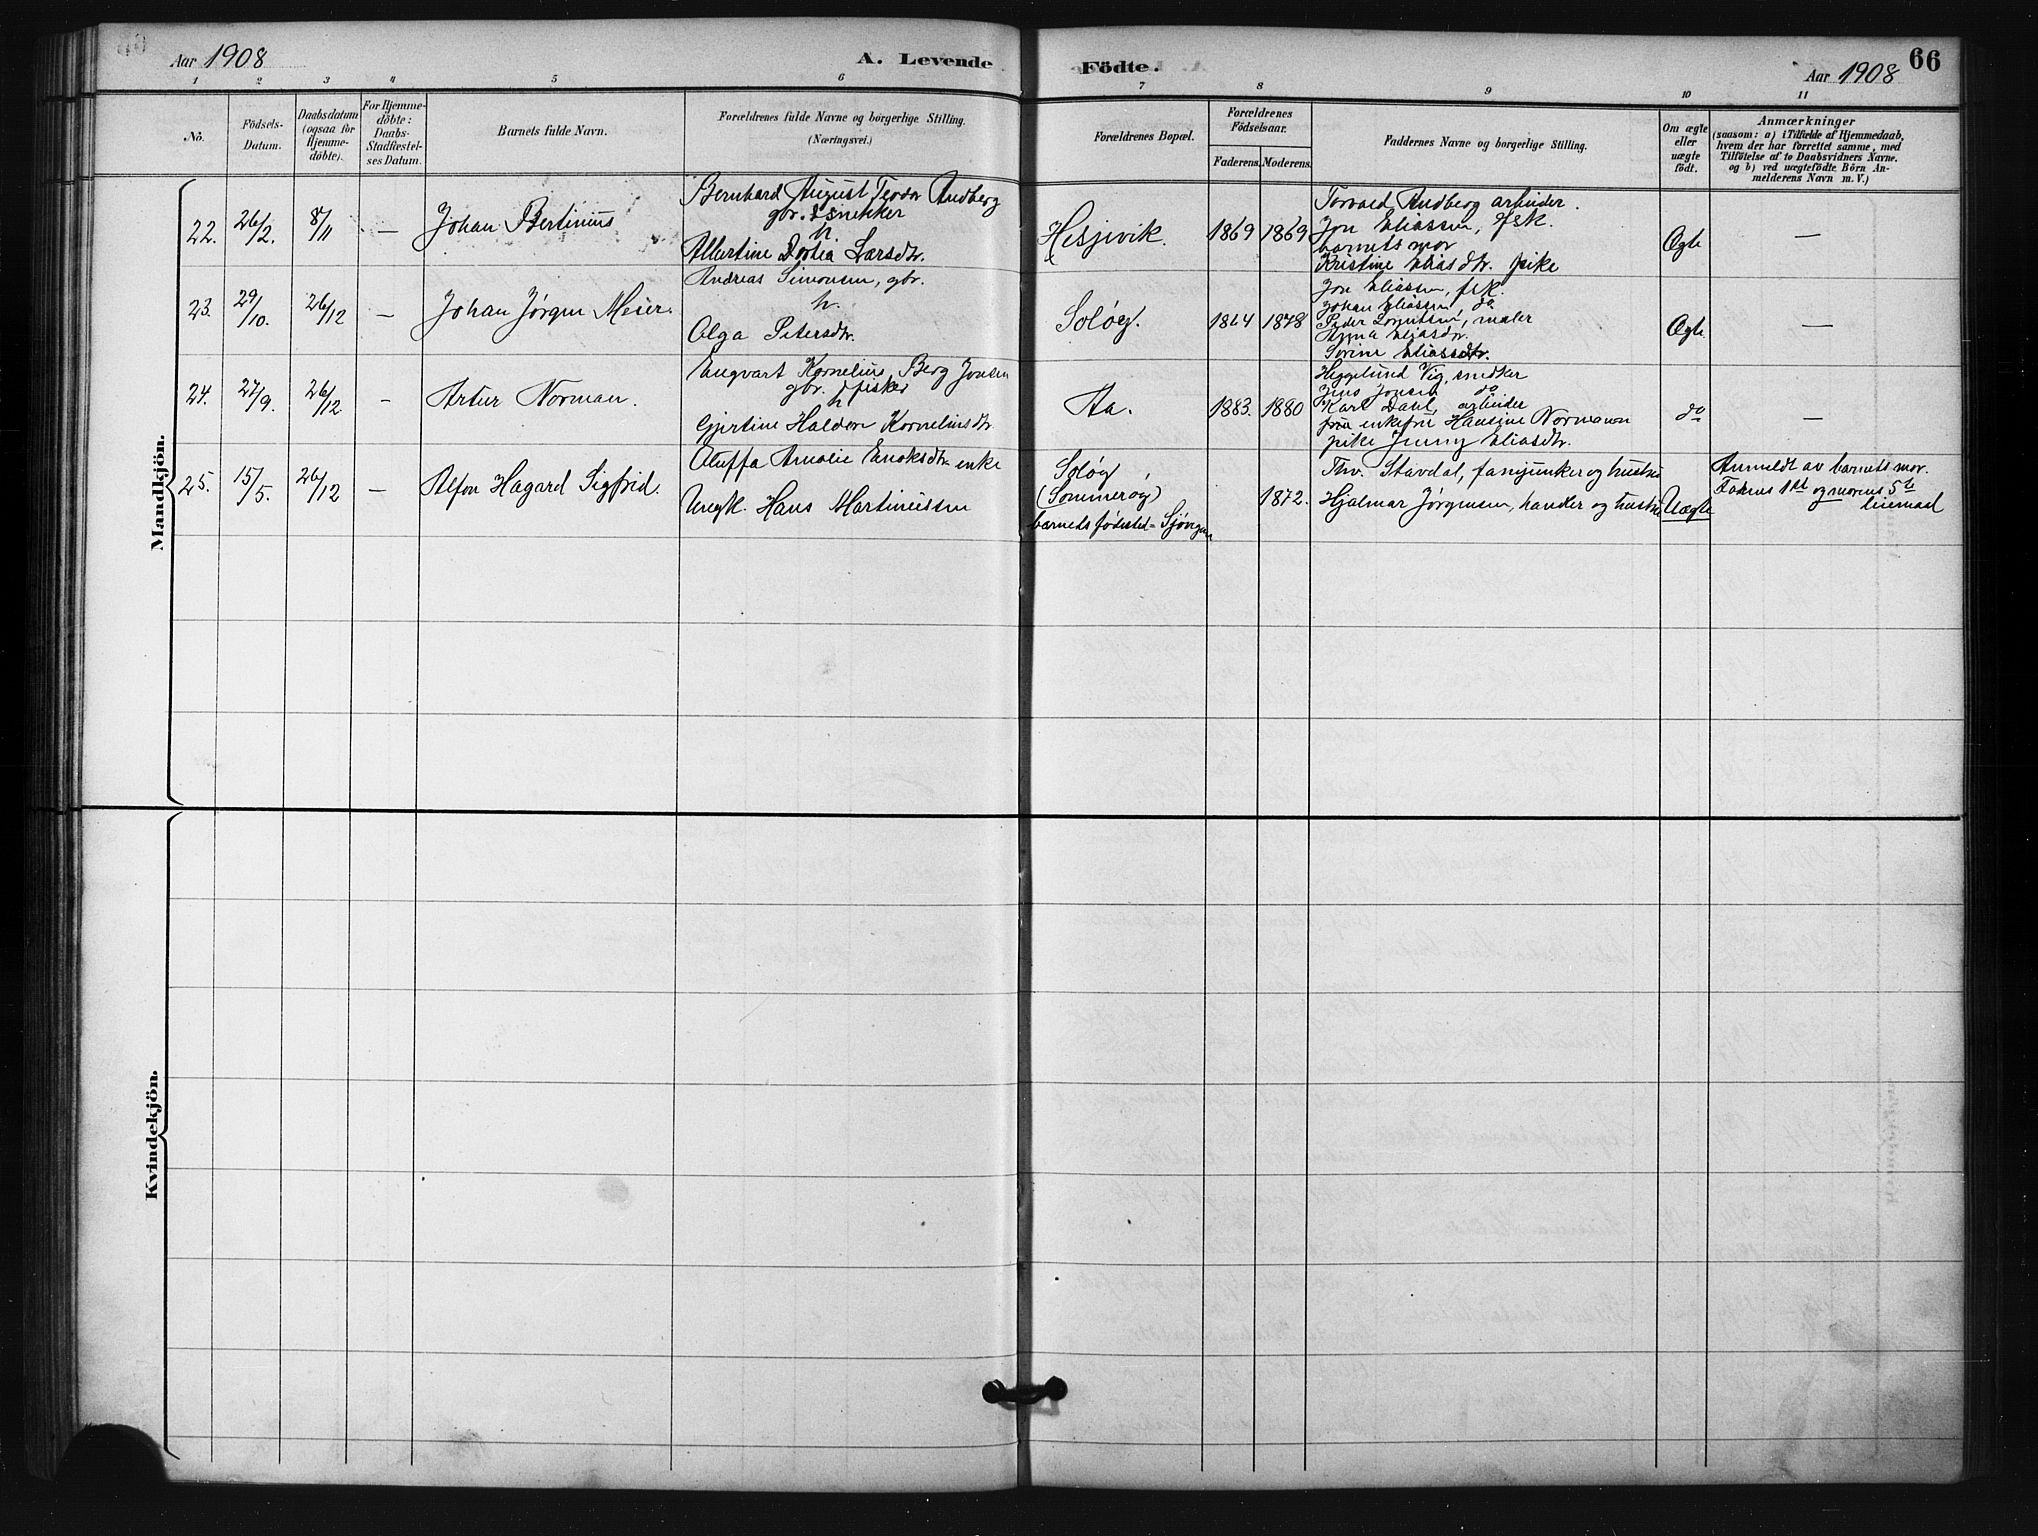 Aar 1908
A. Levende
Födte.
66
Aar 1908
1 2 3 4 5 6 7 8 9 10 11
No.
Födsels-
Datum.
Daabsdatum
(ogsaa for
Hjemme-
döbte).
For Hjemme-
döbte:
Daabs-
Stadfæstel-
ses Datum.
Barnets fulde Navn.
Forældrenes fulde Navne og borgerlige Stilling.
(Næringsvei.)
Forældrenes Bopæl.
Forældrenes
Födselsaar.
Faderens. Moderens.
Faddernes Navne og borgerlige Stilling.
Om ægte
eller
uægte
født.
Anmærkninger
(saasom: a) i Tilfælde af Hjemmedaab,
hvem der har forrettet samme, med
Tilföielse af to Daabsvidners Navne.
og b) ved uægtefödte Börn An-
melderens Navn m. V.)
Mandkjön.
22. 26/2. 8/11 — Johan Bertinius
Bernhard August Teodor Andberg
gbr. & snekker
h.
Albertine Dortea Larsdtr.
Hesjevik. 1869 1869
Torvald Andberg arbeider.
Jon Eliassen, fsk.
barnets mor
Kristine Eliasdtr. pike
Ægte —
23. 29/10. 26/12 — Johan Jørgen Meier.
Andreas Simonsen, gbr.
h.
Olga Petersdtr.
Soløy. 1864 1878
Jon Eliassen, fsk.
Johan Eliassen do
Peder Lorentsen, maler
Anna Eliasdtr.
Sorine Eliassdtr.
Ægte —
24. 27/9. 26/12 - Artur Norman.
Engvart Kornelius Berg Jonsen
gbr. & fisker
h
Gjertine Haldora Kornelius dtr.
Aa. 1883. 1880
Heggelund Vig, snedker
Jens Jonsen do
Karl Dahl, arbeider
enkefru Hansine Normann
pike Jenny Eliasdtr.
do —
25. 15/5. 26/12 — Alfon Hagard Sigfrid.
Oluffa Amalie Enoksdtr. enke
Ungk. Hans Martinussen
Soløy
(Sommerøy)
barnets fødested =
1872.
Thv. Stavdal, fanejunker og hustru
Hjalmar Jørgensen, handler og hustru
Uægte
Anmeldt av barnets mor.
Faderens 1st og morens 5te
leiermaal
Kvindekjön.